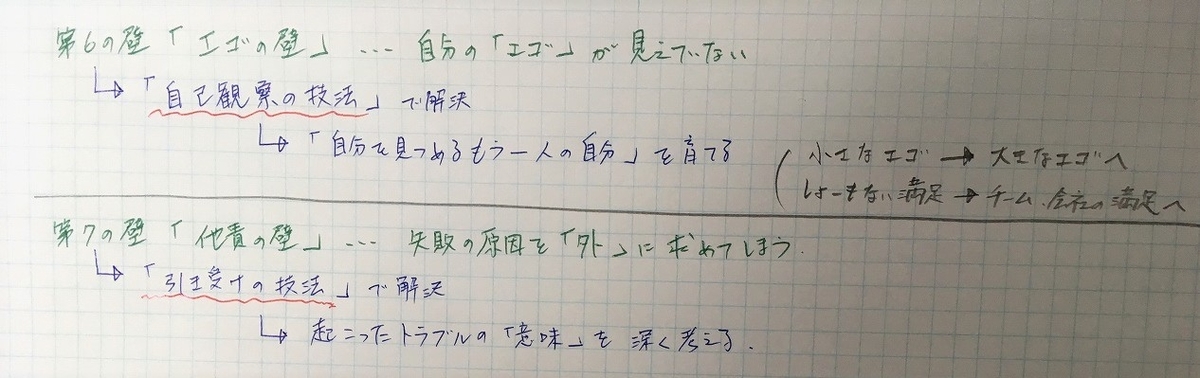 第6の壁「エゴの壁」… 自分の「エゴ」が見えていない
↳「自己観察の技法」で解決
↳「自分を見つめるもう一人の自分」を育てる
(小さなエゴ → 大きなエゴへ
しょーもない満足 → チーム、会社の満足へ
第7の壁「他責の壁」… 失敗の原因を「外」に求めてしまう.
↳「引き受けの技法」で解決
↳ 起こったトラブルの「意味」を深く考える.